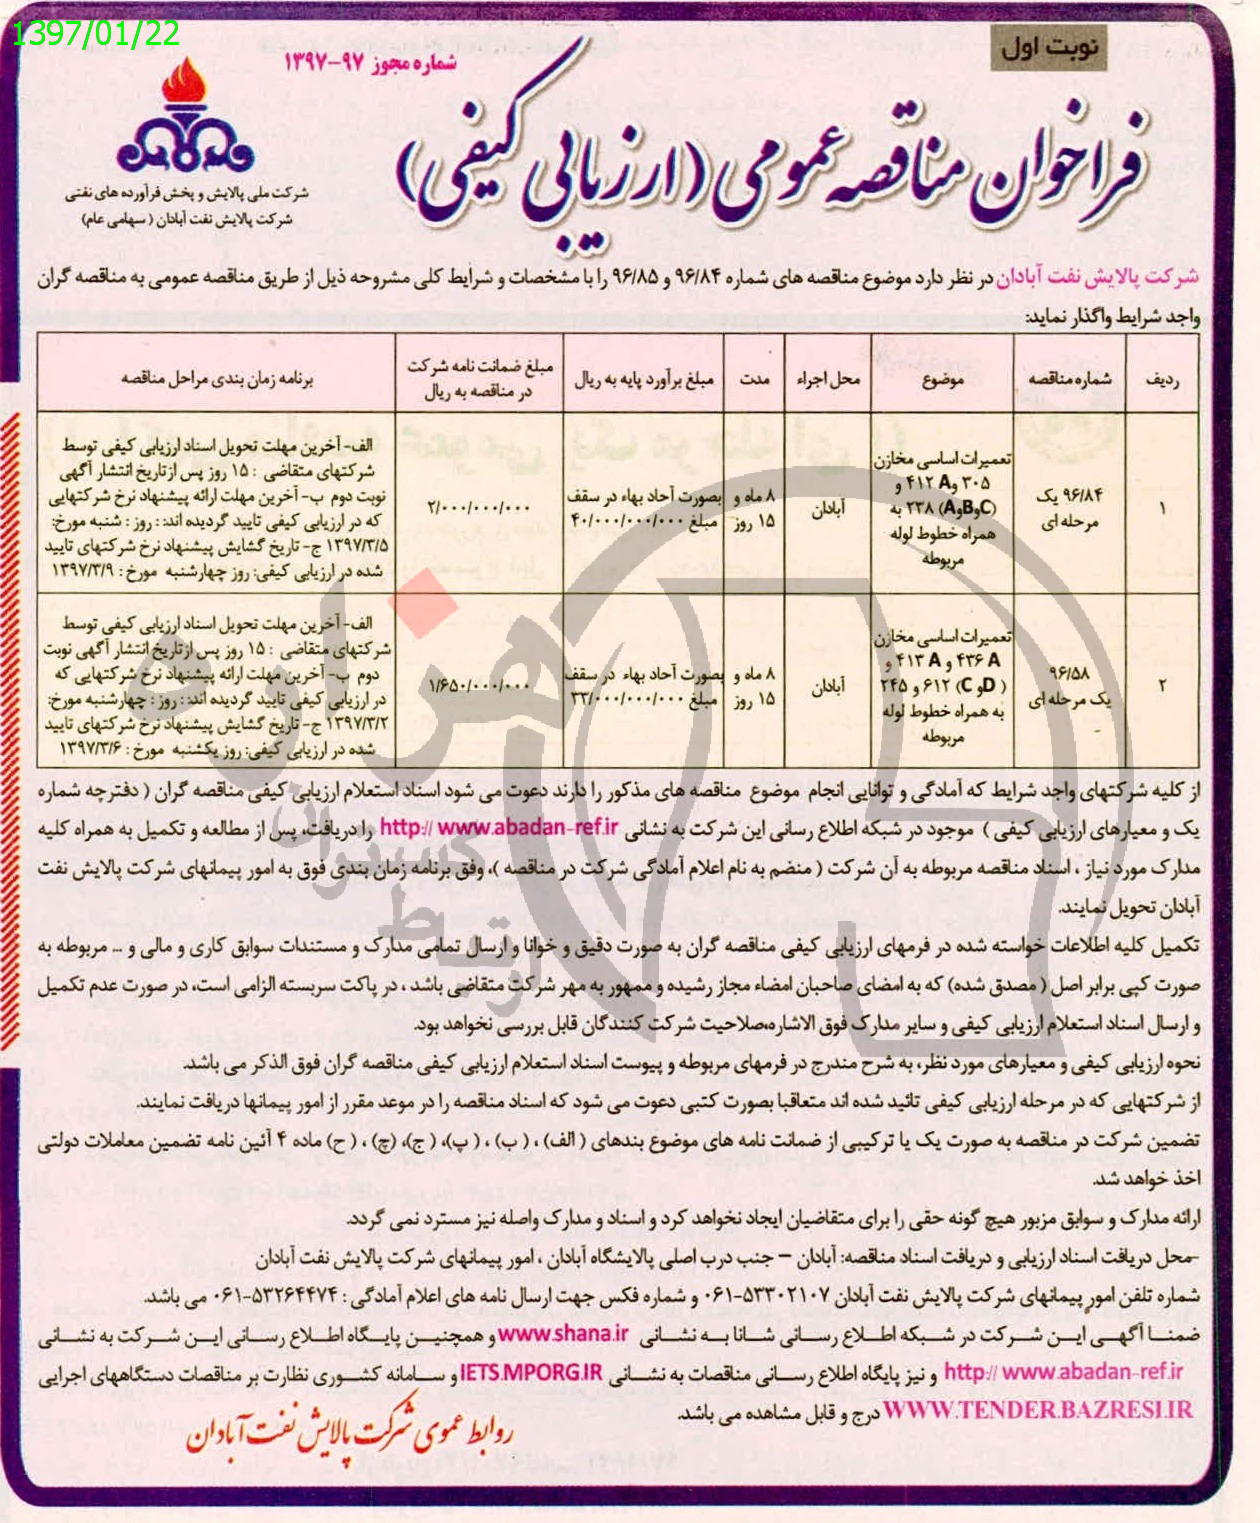 1397/01/22
نوبت اول
شماره مجوز ۹۷-۱۳۹۷
فراخوان مناقصه عمومی (ارزیابی کیفی)
شرکت ملی پالایش و پخش فرآورده های نفتی
شرکت پالایش نفت آبادان (سهامی عام)
شرکت پالایش نفت آبادان در نظر دارد موضوع مناقصه های شماره ۹۶/۸۴ و ۹۶/۸۵ را با مشخصات و شرایط کلی مشروحه ذیل از طریق مناقصه عمومی به مناقصه گران
واجد شرایط واگذار نماید:
ردیف
شماره مناقصه
موضوع
محل اجراء
مدت
مبلغ برآورد پایه به ریال
مبلغ ضمانت نامه شرکت
در مناقصه به ریال
برنامه زمان بندی مراحل مناقصه
۱
۹۶/۸۴ یک
مرحله ای
تعمیرات اساسی مخازن
۳۰۵ و۴۱۲ A و
(CوBوA) ۲۳۸ به
همراه خطوط لوله
مربوطه
آبادان
۸ ماه و
۱۵ روز
بصورت آحاد بهاء در سقف
مبلغ ۴۰/۰۰۰/۰۰۰/۰۰۰
۲/۰۰۰/۰۰۰/۰۰۰
الف- آخرین مهلت تحویل اسناد ارزیابی کیفی توسط
شرکتهای متقاضی : ۱۵ روز پس ازتاریخ انتشار آگهی
نوبت دوم ب- آخرین مهلت ارائه پیشنهاد نرخ شرکتهایی
که در ارزیابی کیفی تایید گردیده اند: : روز : شنبه مورخ:
۱۳۹۷/۳/۵ ج- تاریخ گشایش پیشنهاد نرخ شرکتهای تایید
شده در ارزیابی کیفی: روز چهارشنبه مورخ : ۱۳۹۷/۳/۹
۲
۹۶/۵۸
یک مرحله ای
تعمیرات اساسی مخازن
۴۳۶ A و ۴۱۳ A و
( Dو C) ۶۱۲ و ۲۴۵
به همراه خطوط لوله
مربوطه
آبادان
۸ ماه و
۱۵ روز
بصورت آحاد بهاء در سقف
مبلغ ۳۳/۰۰۰/۰۰۰/۰۰۰
۱/۶۵۰/۰۰۰/۰۰۰
الف- آخرین مهلت تحویل اسناد ارزیابی کیفی توسط
شرکتهای متقاضی : ۱۵ روز پس ازتاریخ انتشار آگهی نوبت
دوم ب- آخرین مهلت ارائه پیشنهاد نرخ شرکتهایی که
در ارزیابی کیفی تایید گردیده اند: : روز : چهارشنبه مورخ:
۱۳۹۷/۳/۲ ج- تاریخ گشایش پیشنهاد نرخ شرکتهای تایید
شده در ارزیابی کیفی: روز یکشنبه مورخ : ۱۳۹۷/۳/۶
از کلیه شرکتهای واجد شرایط که آمادگی و توانایی انجام موضوع مناقصه های مذکور را دارند دعوت می شود اسناد استعلام ارزیابی کیفی مناقصه گران ( دفترچه شماره
یک و معیارهای ارزیابی کیفی ) موجود در شبکه اطلاع رسانی این شرکت به نشانی http:// www.abadan-ref.ir را دریافت، پس از مطالعه و تکمیل به همراه کلیه
مدارک مورد نیاز ، اسناد مناقصه مربوطه به آن شرکت ( منضم به نام اعلام آمادگی شرکت در مناقصه )، وفق برنامه زمان بندی فوق به امور پیمانهای شرکت پالایش نفت
آبادان تحویل نمایند.
تکمیل کلیه اطلاعات خواسته شده در فرمهای ارزیابی کیفی مناقصه گران به صورت دقیق و خوانا و ارسال تمامی مدارک و مستندات سوابق کاری و مالی و ... مربوطه به
صورت کپی برابر اصل ( مصدق شده) که به امضای صاحبان امضاء مجاز رشیده و ممهور به مهر شرکت متقاضی باشد ، در پاکت سربسته الزامی است، در صورت عدم تکمیل
و ارسال اسناد استعلام ارزیابی کیفی و سایر مدارک فوق الاشاره،صلاحیت شرکت کنندگان قابل بررسی نخواهد بود.
نحوه ارزیابی کیفی و معیارهای مورد نظر، به شرح مندرج در فرمهای مربوطه و پیوست اسناد استعلام ارزیابی کیفی مناقصه گران فوق الذکر می باشد.
از شرکتهایی که در مرحله ارزیابی کیفی تائید شده اند متعاقبا بصورت کتبی دعوت می شود که اسناد مناقصه را در موعد مقرر از امور پیمانها دریافت نمایند.
تضمین شرکت در مناقصه به صورت یک یا ترکیبی از ضمانت نامه های موضوع بندهای ( الف) ، ( ب) ، ( پ)، ( ج)، (چ) ، ( ح) ماده ۴ آئین نامه تضمین معاملات دولتی
اخذ خواهد شد.
ارائه مدارک و سوابق مزبور هیچ گونه حقی را برای متقاضیان ایجاد نخواهد کرد و اسناد و مدارک واصله نیز مسترد نمی گردد.
-محل دریافت اسناد ارزیابی و دریافت اسناد مناقصه: آبادان – جنب درب اصلی پالایشگاه آبادان ، امور پیمانهای شرکت پالایش نفت آبادان
شماره تلفن امور پیمانهای شرکت پالایش نفت آبادان ۵۳۳۰۲۱۰۷-۰۶۱ و شماره فکس جهت ارسال نامه های اعلام آمادگی : ۵۳۲۶۴۴۷۴-۰۶۱ می باشد.
ضمنا آگهی این شرکت در شبکه اطلاع رسانی شانا به نشانی www.shana.ir و همچنین پایگاه اطلاع رسانی این شرکت به نشانی
http:// www.abadan-ref.ir و نیز پایگاه اطلاع رسانی مناقصات به نشانی IETS.MPORG.IR و سامانه کشوری نظارت بر مناقصات دستگاههای اجرایی
WWW.TENDER.BAZRESI.IR درج و قابل مشاهده می باشد.
روابط عمومی شرکت پالایش نفت آبادان